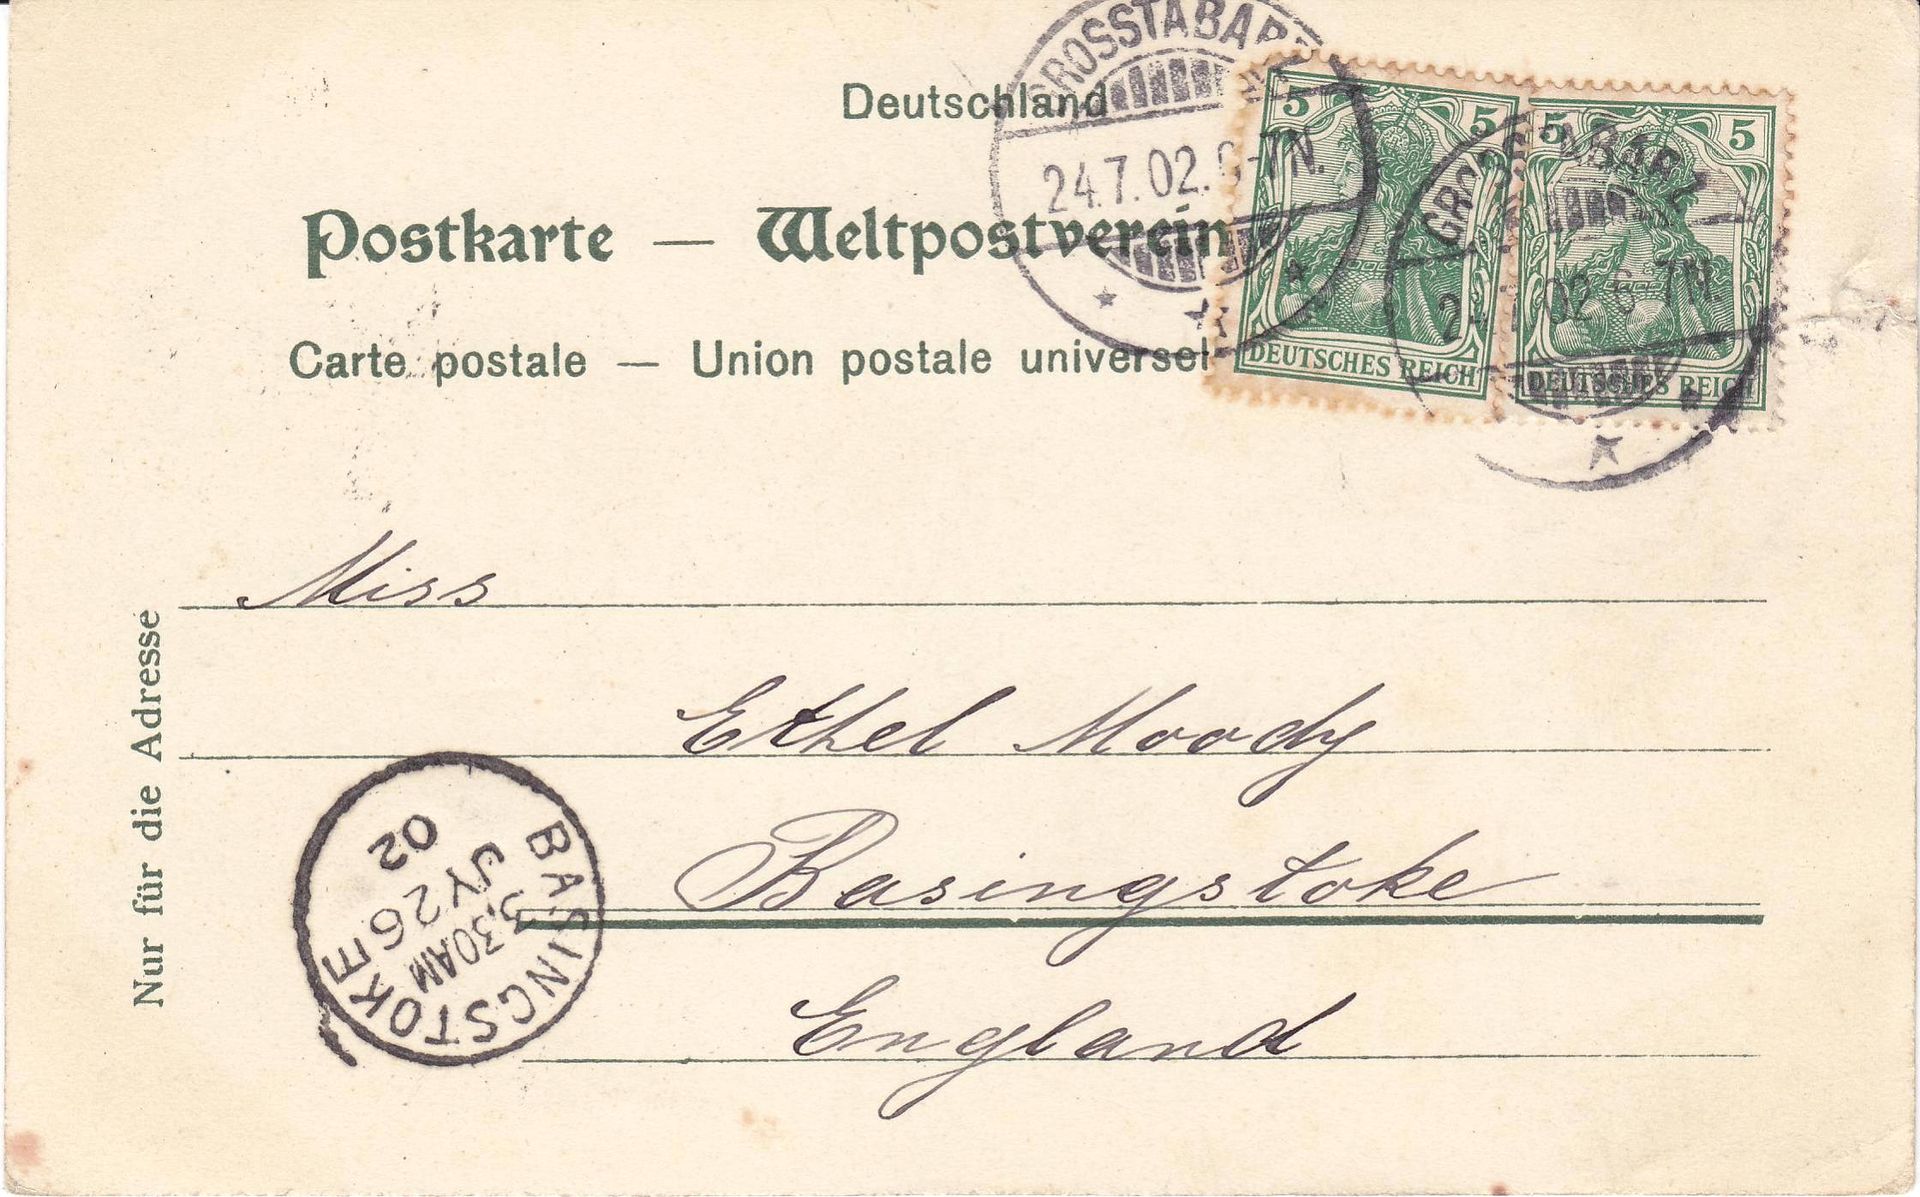 GROSSTABARZ
Deutschland
24.7.02. 6-7N.
Postkarte — Weltpostverein
Carte postale — Union postale universel
5 5
DEUTSCHES REICH
5 5
DEUTSCHES REICH
GROSSTABARZ
24.7.02 6-7N.
Miss
Ethel Moody
Basingstoke
England
Nur für die Adresse
BASINGSTOKE
5.30AM
JY26
02